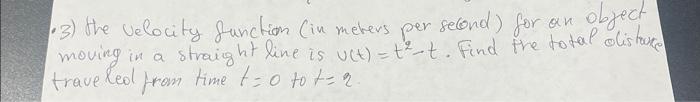 •3) the velocity function (in meters per second) for an object
moving in a straight line is v(t) = t² - t. Find the total distance
traveled from time t = 0 to t = 2.